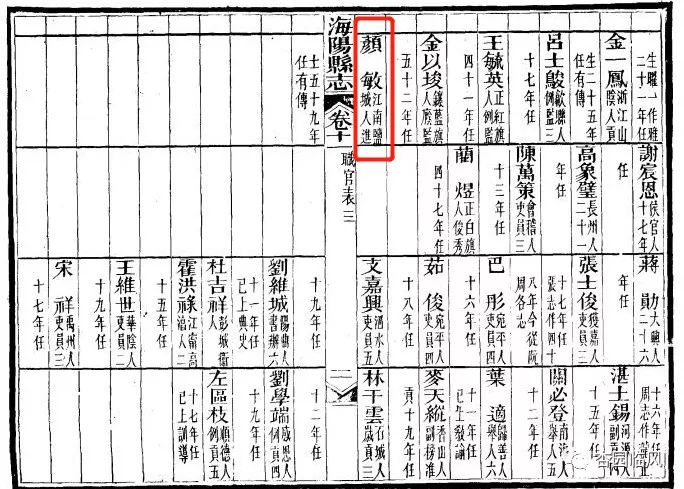 生曜一作雅
二十一年任
金一鳳 浙江山
陰人貢
生二十五年
任有傳
呂士鵔 歙縣人
例監三
十七年任
王毓英 正紅旗
人例監
四十一年任
金以埈 鑲藍旗
人廕監
五十二年任
顏敏 江南鹽
城人進
海陽縣志 卷十 職官表三
士五十九年
任有傳
謝宸恩 侯官人
二十七年任
高象璧 長州人
二十一
年任
陳萬策 會稽人
吏員三
十三年任
藺煜 正白旗
人俊秀
四十七年任
蔣勛 大興人
二十六
年任
張士俊 獲嘉人
吏員三
十七年任
張志作四十
八年今從阮
周各志
巴彤 宛平人
吏員四
十六年任
茹俊 宛平人
吏員四
十八年任
支嘉興 泗水人
吏員五
十九年任
劉維城 陽曲人
書辦六
十一年任
已上典史
杜吉祥 彭城衛
人
霍洪祿 江南高
二
十五年任
王維世 華陰人
吏員二
十九年任
宋祥 禹州人
吏員三
十七年任
十六年任
周志作
湛土錫 河源人
副貢
十五年任
關必登 南海人
舉人五
十二年任
葉適 歸善人
舉人六
十一年任
已上教諭
麥天縱 香山人
副榜准
貢十九年任
林干雲 石城人
歲貢三
十二年任
劉學端 感恩人
例貢四
十九年任
左區枝 順德人
例貢五
十七年任
已上訓導